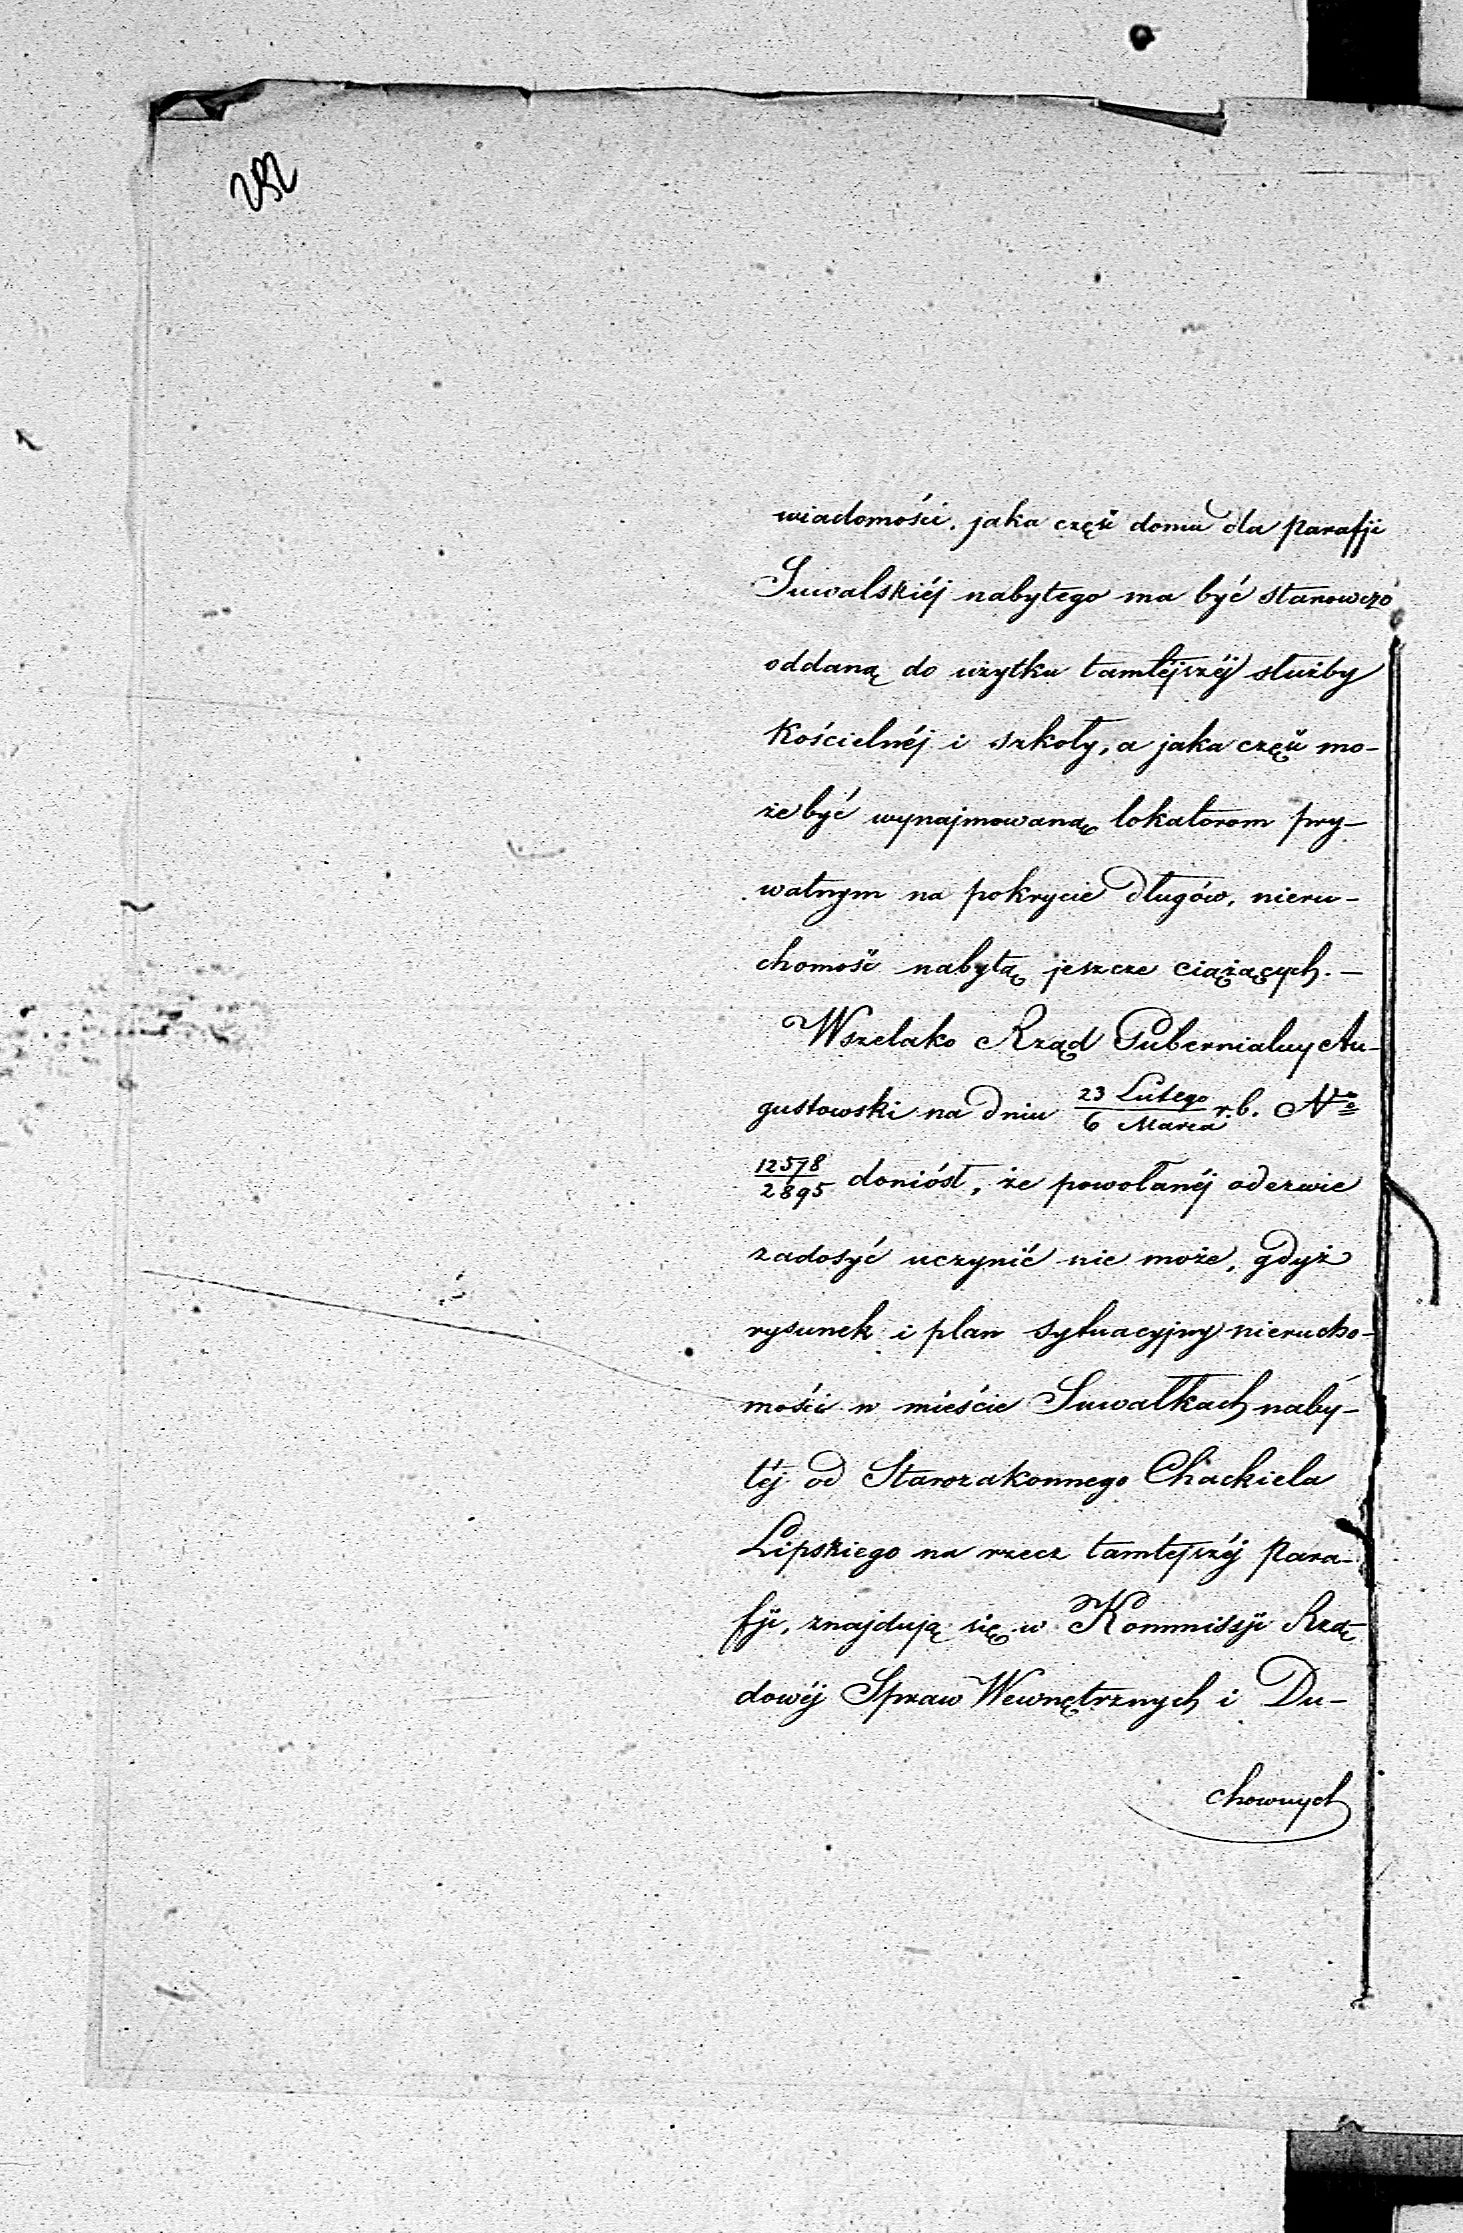 252
wiadomości, jaka część domu dla parafji
Suwalskiéj nabytego ma być stanowczo
oddaną do użytku tamtéjszéj służby
Kościelnéj i szkoły, a jaka część mo-
że być wynajmowaną lokatorom pry-
watnym na pokrycie długów, nieru-
chomość nabytą jeszcze ciążących. —
Wszelako Rząd Gubernialny Au-
gustowski na dniu 23 Lutego / 6 Marca r. b. No
12578 / 2895 doniósł, że powołanéj odezwie
zadosyć uczynić nie może, gdyż
rysunek i plan sytuacyjny nierucho-
mości w mieście Suwałkach naby-
téj od Starozakonnego Chackiela
Lipskiego na rzecz tamtejszéj para-
fji, znajdują się w Kommissji Rzą-
dowéj Spraw Wewnętrznych i Du-
chownych